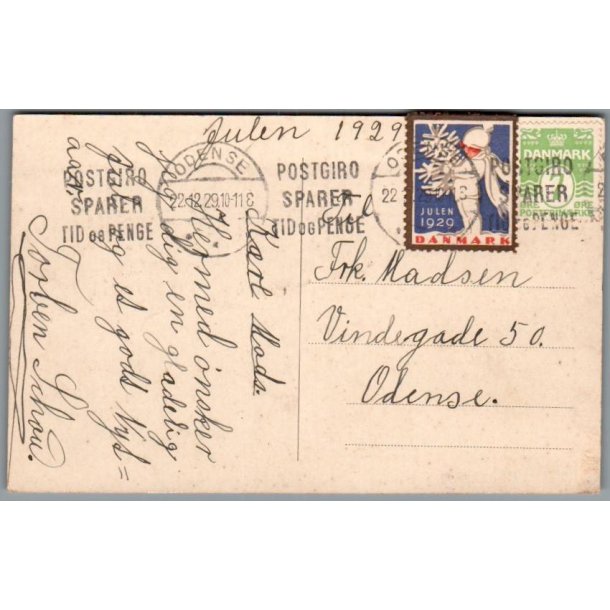 Julen 1929
Kære Mads.
Hermed ønsker
jeg dig en glædelig
Jul og et godt Nyt=
aar
Torben Schou.
Frk. Madsen
Vindegade 50.
Odense.
ODENSE
22.12.29.10-11 E
POSTGIRO
SPARER
TID OG PENGE
POSTGIRO
SPARER
TID OG PENGE
22
POSTGIRO
SPARER
PENGE
JULEN
1929
DANMARK
DANMARK
7
ØRE